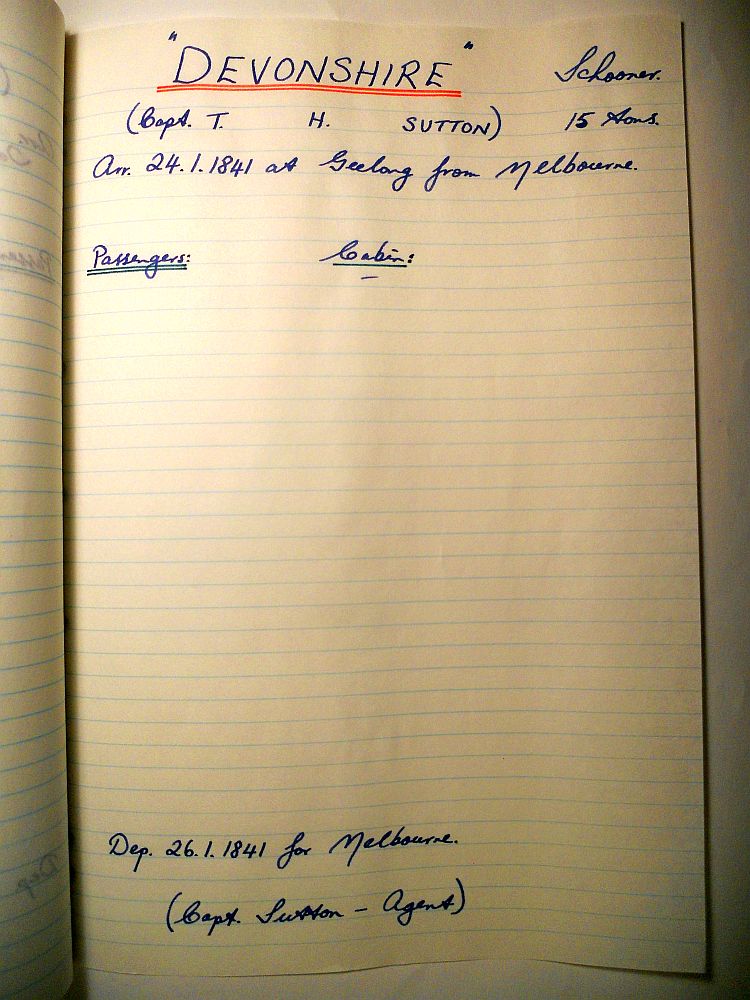 "DEVONSHIRE" Schooner.
(Capt. T. H. SUTTON) 15 tons.
Arr. 24.1.1841 at Geelong from Melbourne.
Passengers: Cabin:
—
Dep. 26.1.1841 for Melbourne.
(Capt. Sutton – Agent)